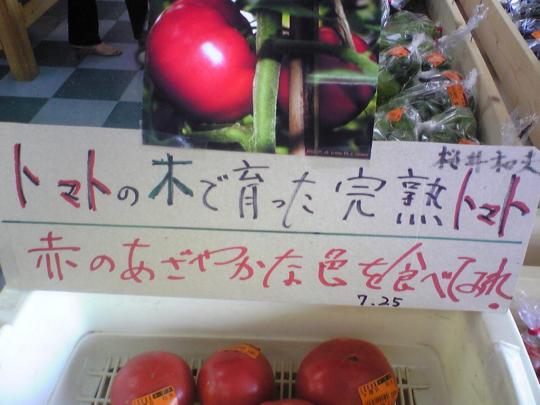 桜井和丈
トマトの木で育った完熟トマト
赤のあざやかな色を食べてみれ!
7.25